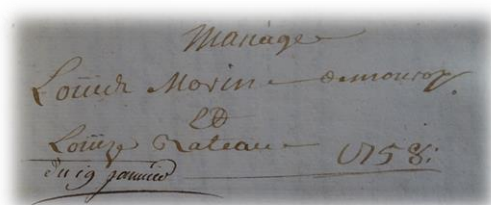 Mariage
Louis Morin
Et
Louise Rateau 1758:
du 19 janvier